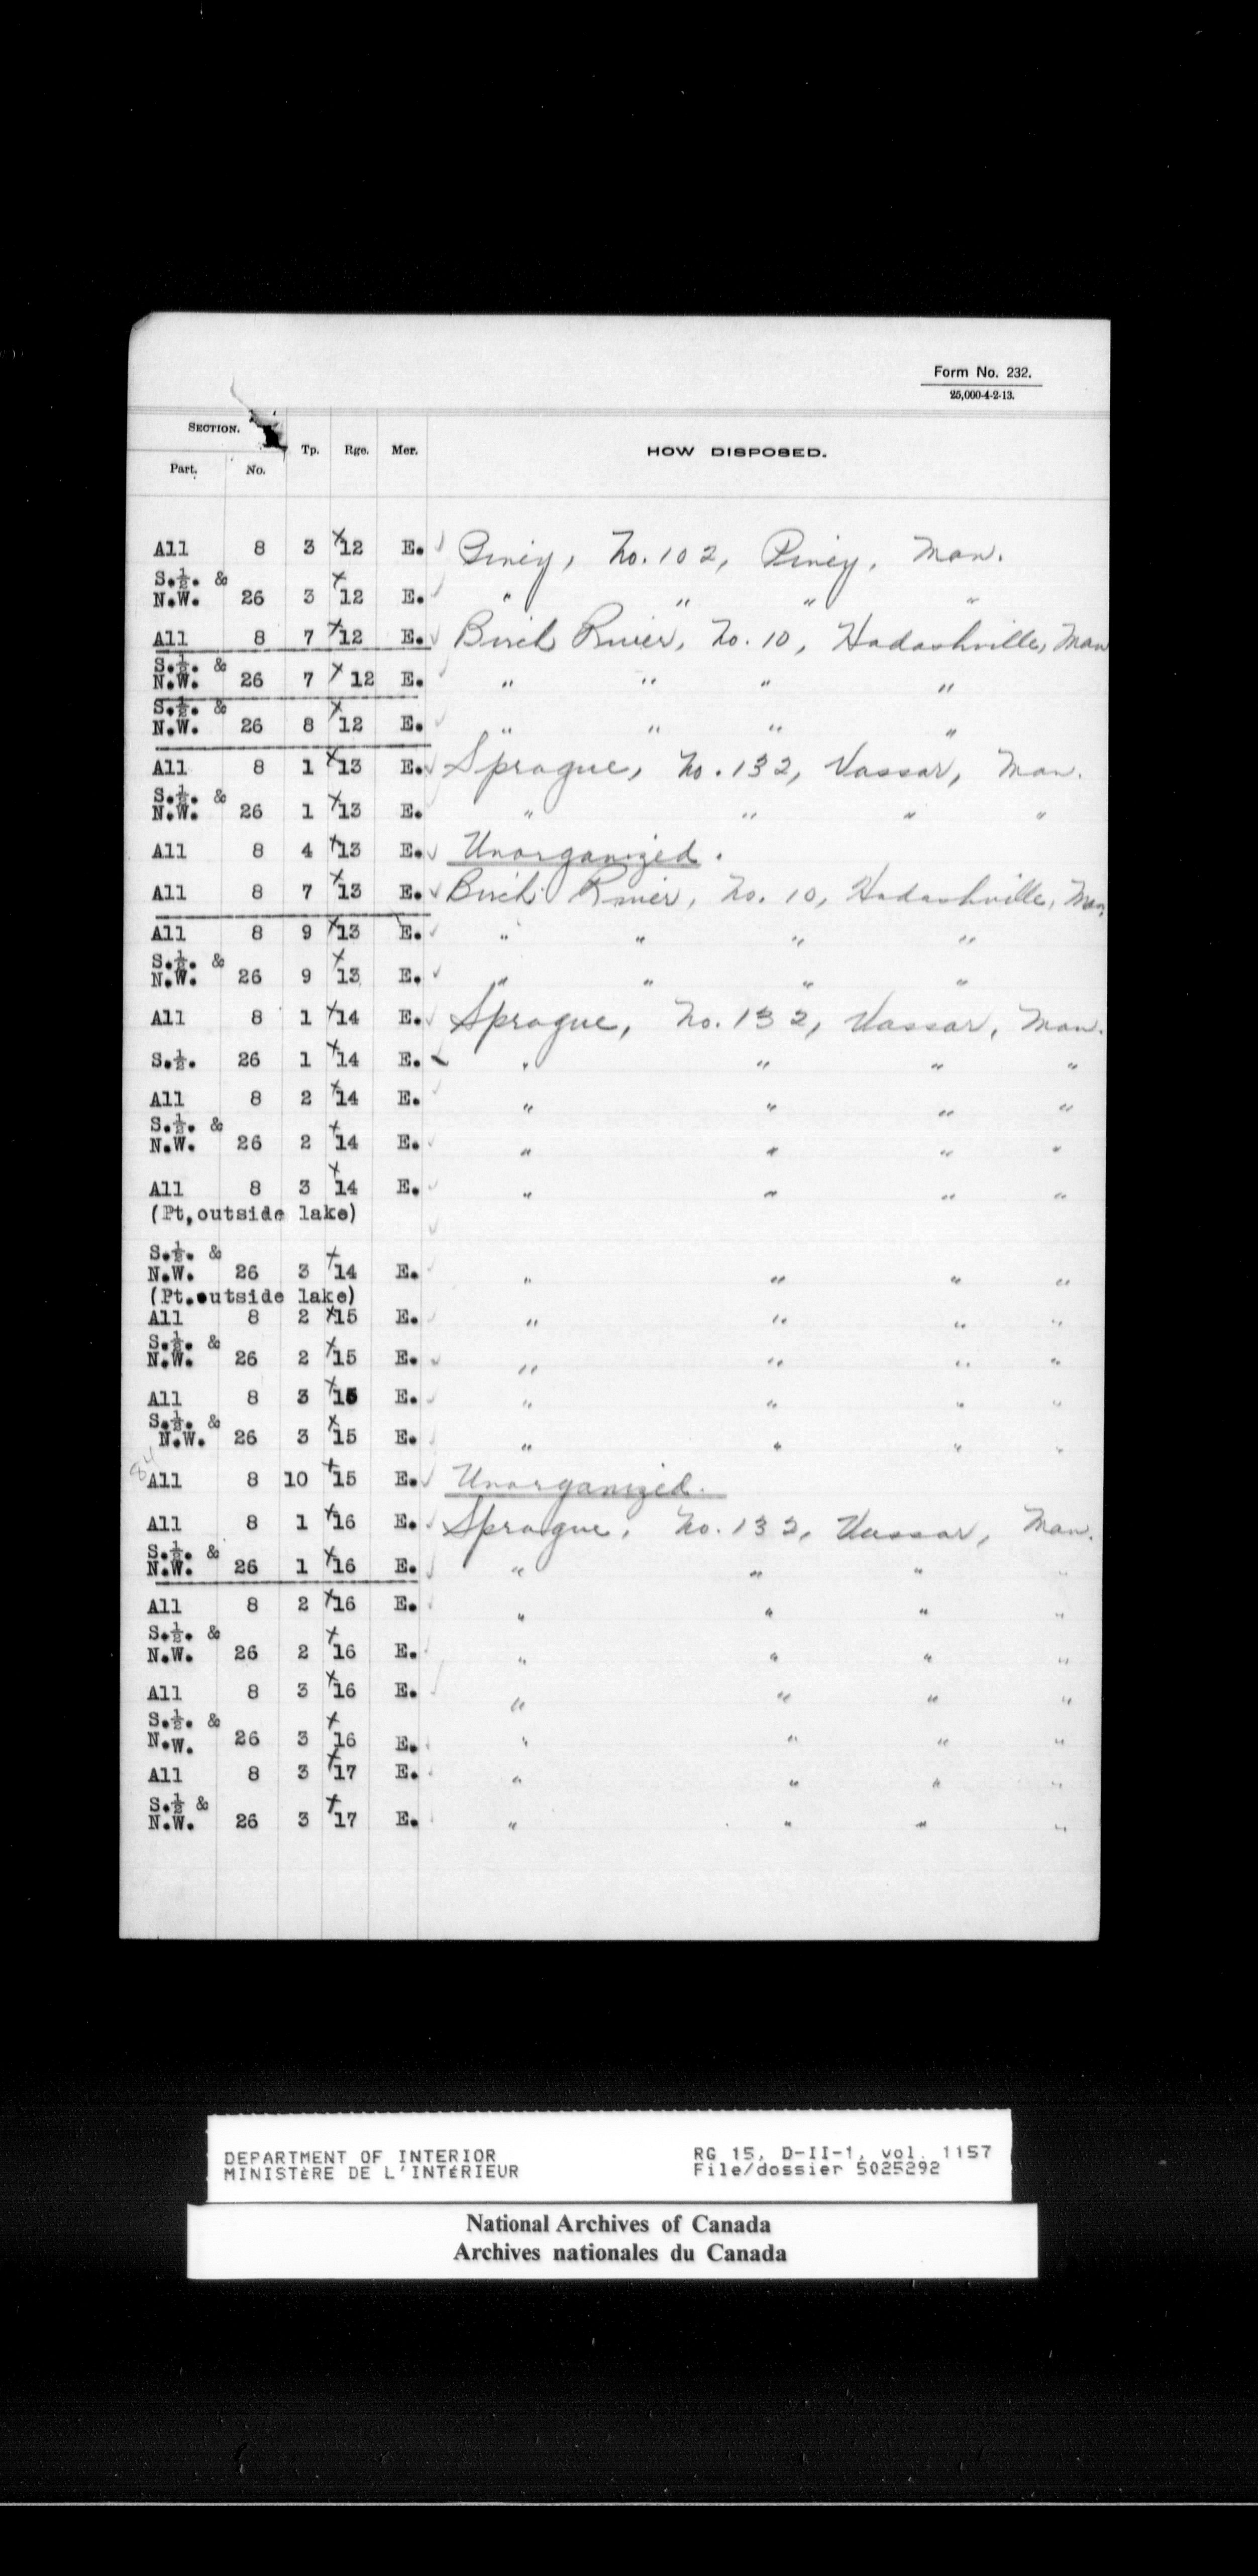 Form No. 232.
25,000-4-2-13.
SECTION. Tp. Rge. Mer. HOW DISPOSED.
Part. No.
All 8 3 x12 E. ✓ Piney, No. 102, Piney, Man.
S.½. &
N.W. 26 3 x12 E. ✓ " " " "
All 8 7 x12 E. ✓ Birch River, No. 10, Hadashville, Man
S.½. &
N.W. 26 7 x12 E. ✓ " " " "
S.½. &
N.W. 26 8 x12 E. ✓ " " " "
All 8 1 x13 E. ✓ Sprague, No. 132, Vassar, Man.
S.½. &
N.W. 26 1 x13 E. " " " "
All 8 4 x13 E. ✓ Unorganized.
All 8 7 x13 E. ✓ Birch River, No. 10, Hadashville, Man,
All 8 9 x13 E. ✓ " " " "
S.½. &
N.W. 26 9 x13 E. ✓ " " " "
All 8 1 x14 E. ✓ Sprague, No. 132, Vassar, Man.
S.½. 26 1 x14 E. ✓ " " " "
All 8 2 x14 E. ✓ " " " "
S.½. &
N.W. 26 2 x14 E. ✓ " " " "
All 8 3 x14 E. ✓ " " " "
(Pt,outside lake) ✓
S.½. &
N.W. 26 3 x14 E. ✓ " " " "
(Pt.outside lake)
All 8 2 x15 E. ✓ " " " "
S.½. &
N.W. 26 2 x15 E. ✓ " " " "
All 8 3 x15 E. ✓ " " " "
S.½. &
N.W. 26 3 x15 E. ✓ " " " "
All 8 10 x15 E. ✓ Unorganized.
All 8 1 x16 E. ✓ Sprague, No. 132, Vassar, Man.
S.½. &
N.W. 26 1 x16 E. ✓ " " " "
All 8 2 x16 E. ✓ " " " "
S.½. &
N.W. 26 2 x16 E. ✓ " " " "
All 8 3 x16 E. ✓ " " " "
S.½. &
N.W. 26 3 x16 E. ✓ " " " "
All 8 3 x17 E. ✓ " " " "
S.½ &
N.W. 26 3 x17 E. ✓ " " " "
DEPARTMENT OF INTERIOR RG 15, D-II-1, vol. 1157
MINISTÈRE DE L'INTÉRIEUR File/dossier 5025292
National Archives of Canada
Archives nationales du Canada